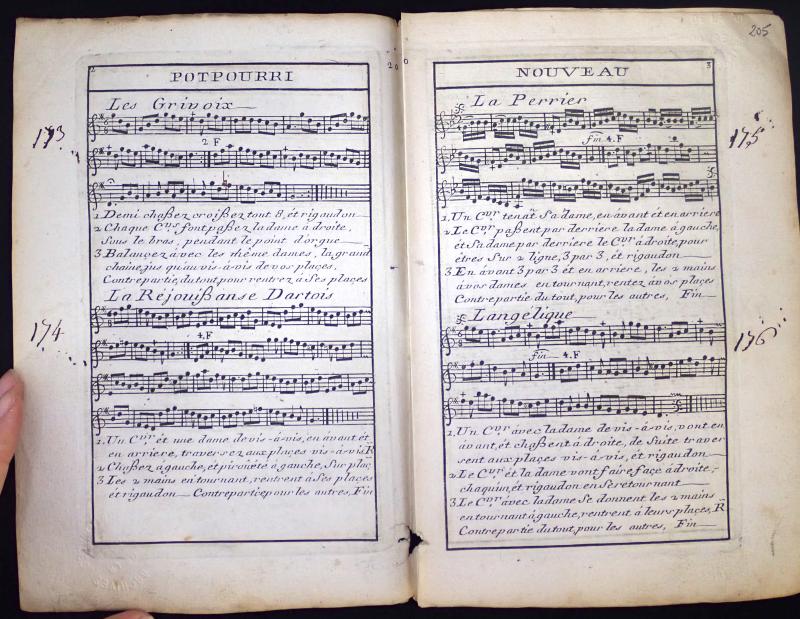 2
POTPOURRI
200
173
Les Grivoix
2 F
1 Demi chaßez croißez tout 8, et rigaudon
2 Chaque C.nr font paßez la dame à droite,
Sous le bras, pendant le point d'orgue
3 Balançez avec les même dames, la grand
chaine, jus qu'au vis-à-vis de vos plaçes,
Contrepartie, du tout, pour rentrez à Ses plaçes
174
La Réjouißanse Dartois
4. F
1. Un C.nr et une dame de vis-à-vis, en avant et
en arriere, traversez aux plaçes vis-à-vis R
2 Chaßez à gauche, et piroiiété à gauche, Sur plaç
3 Les 2 mains en tournant, rentrent à Ses plaçes
et rigaudon Contrepartie pour les autres, Fin
205
NOUVEAU
3
175
La Perrier
fin 4. F
1. Un C.nr tenant Sa dame, en avant et en arriere
2 Le C.nr paßent par derriere la dame à gauche,
et Sa dame par derriere le C.nr à droite, pour
etres Sur 2 ligne, 3 par 3, et rigaudon
3 En avant 3 par 3 et en arriere, les 2 mains
à vos dames en tournant, rentez à vos plaçes
Contrepartie du tout, pour les autres, Fin
176
Langelique
fin 4. F
1. Un C.nr avec la dame de vis-à-vis, vont en
avant, et chaßent à droite, de Suite traver
sent aux plaçes vis-à-vis, et rigaudon
2 Le C.nr et la dame vont faire façe à droite,
chaqu'un, et rigaudon en Se retournant
3 Le C.nr avec la dame Se donnent les 2 mains
en tournant à gauche, rentrent à leurs plaçes, R
Contrepartie du tout, pour les autres, Fin